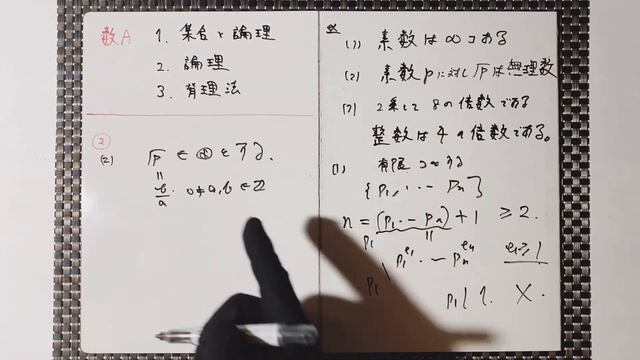 数A
1. 集合と論理
2. 論理
3. 背理法
②
(2) √p ∈ ℚ とする.
||
b/a. 0≠a,b ∈ ℤ
(1) 素数は∞コある
(2) 素数pに対し√pは無理数
(3) 2乗して8の倍数である
整数は4の倍数である。
(1) 有限コとする
{p₁, ... pₙ}
n = (p₁ ... pₙ) + 1 ≥ 2.
p₁ ||
p₁^e₁ ... pₙ^eₙ e₁≥1
p₁ |
p₁ | 1. ×.